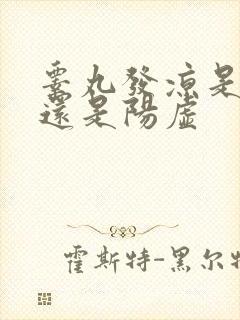 睾丸發涼是
還是陽虛
霍斯特-黑尔特